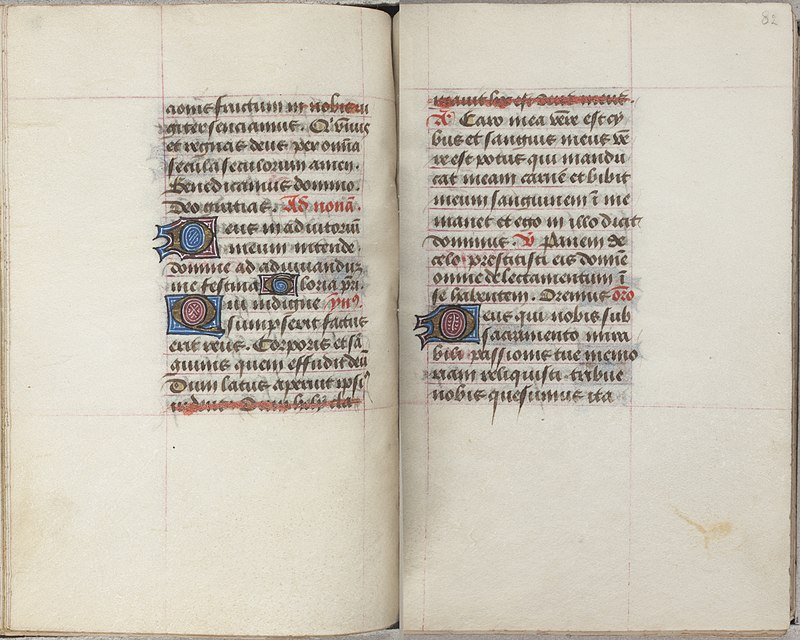 cionis fructum in nobis iu
giter senciamus. Qui vivis
et regnas deus per omnia
secula seculorum amen.
Benedicamus domino.
Deo gratias. Ad nonā.
Deus in adiutoriū
meum intende.
domine ad adiuvanduz
me festina Gloria pri.
Qui indigne ymꝰ.
sumpserit factus
erit reus. Corporis et sā
guinis quem effudit deū
Dum latus aperuit ipsi

82
A Caro mea vēre est cy
bus et sanguis meus vē
re est potus qui mandu
cat meam carnē et bibit
meum sanguinem ī me
manet et ego in illo dicit
dominus. V Panem de
celo prestitisti eis domīe
omne delectamentum ī
se habentem. Oremus orō
Deus qui nobis sub
sacramento mira
bili passionis tue memo
riam reliquisti tribue
nobis quesumus ita